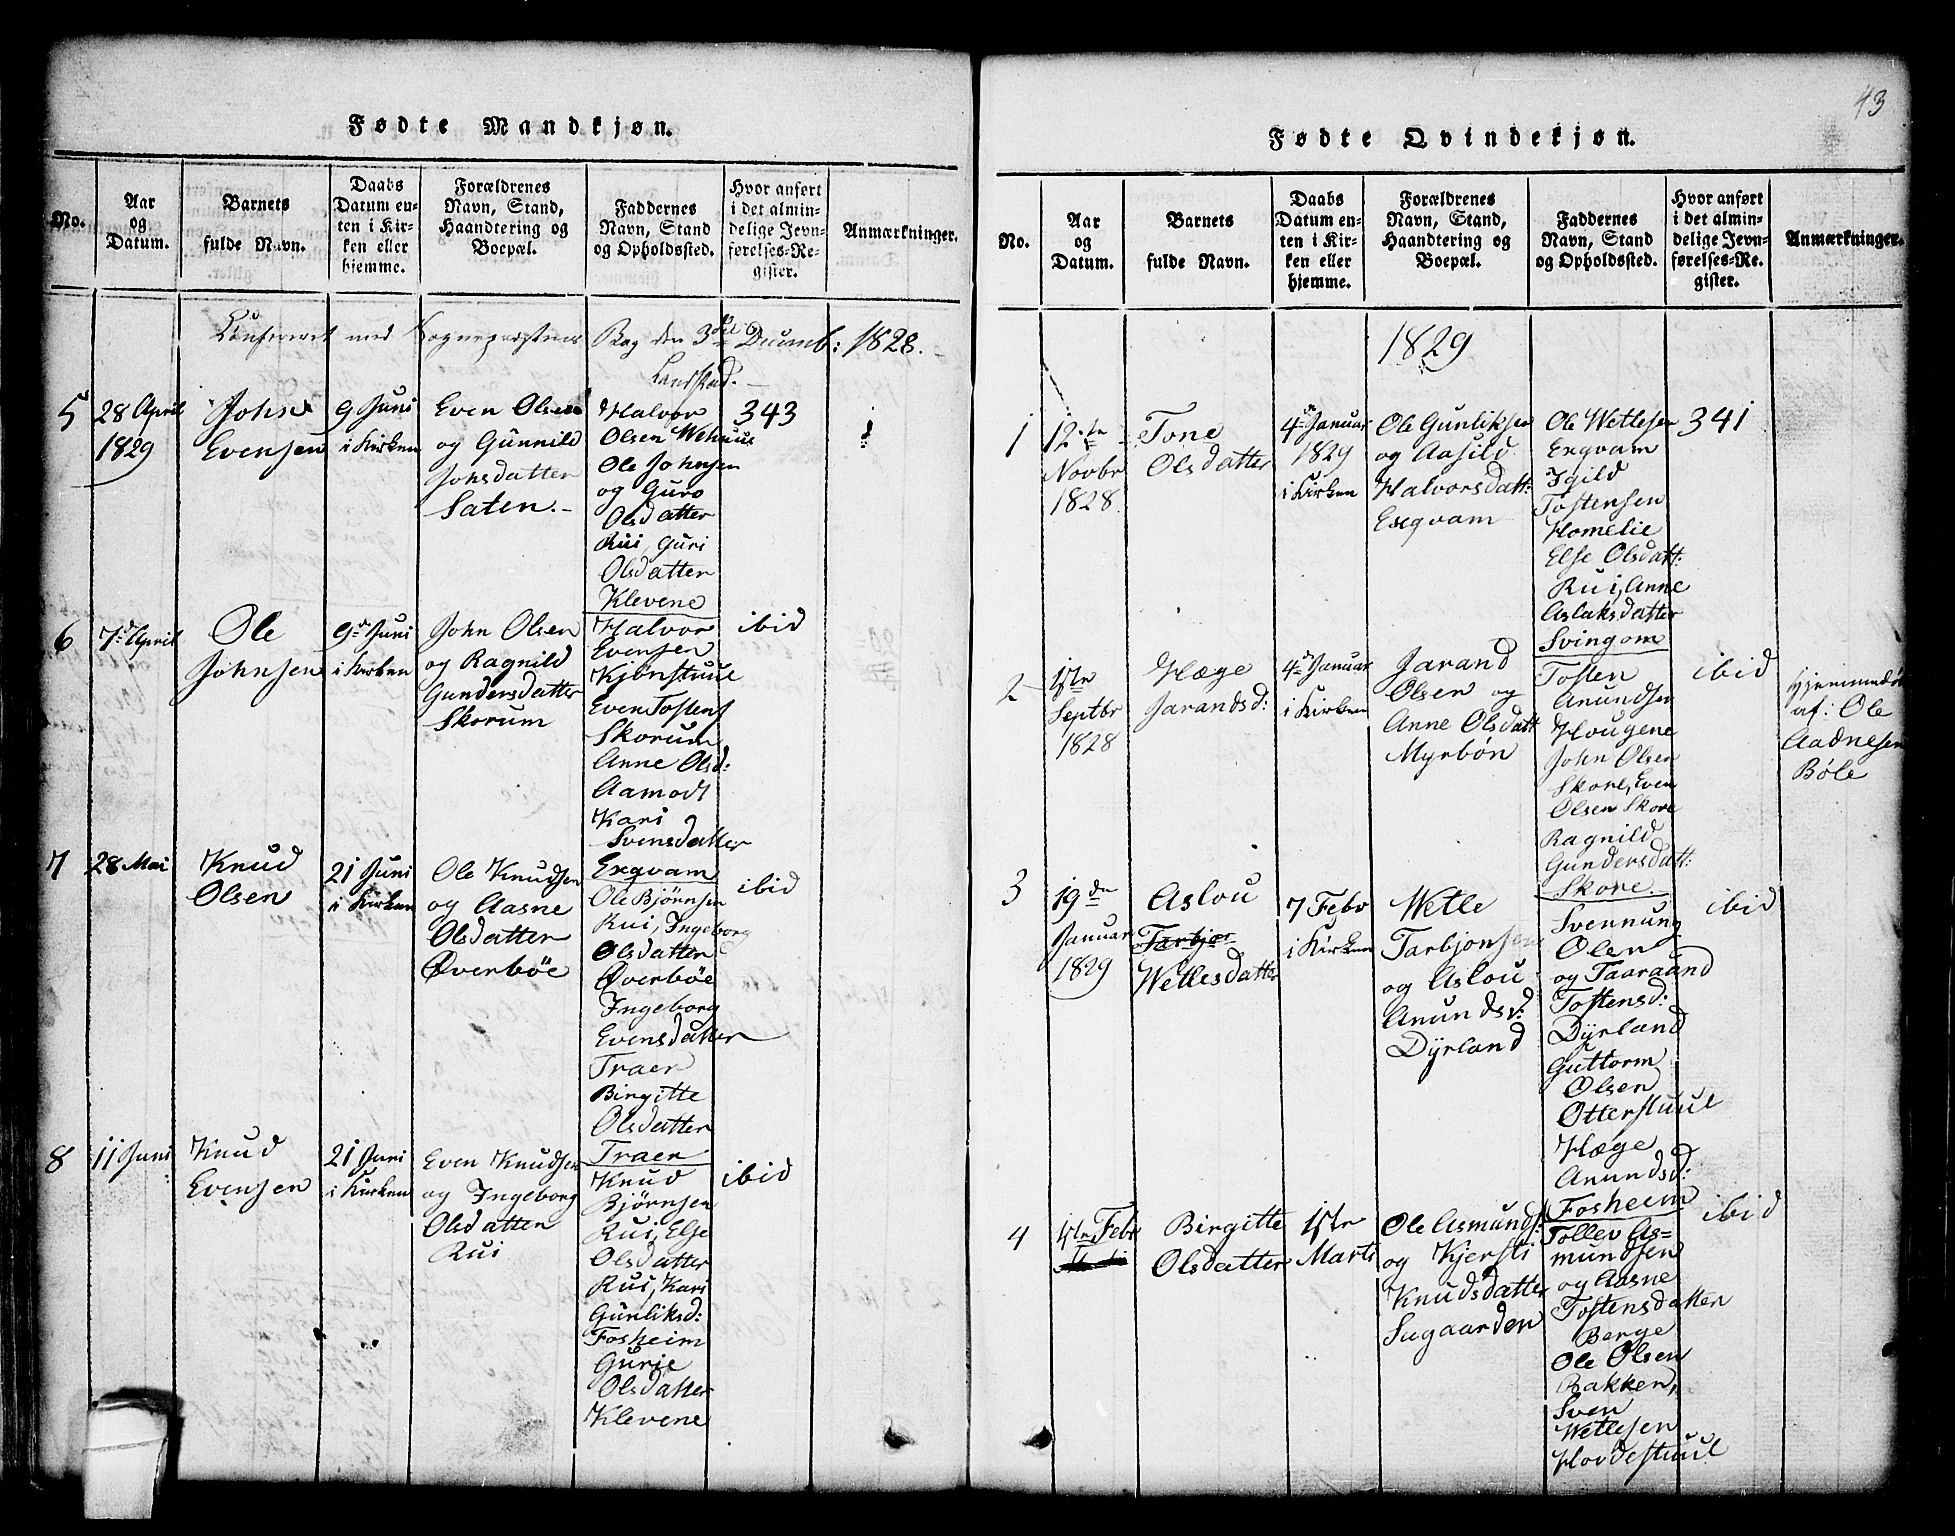 Fødte Mandkjøn.
No.
Aar
og
Datum.
Barnets
fulde Navn.
Daabs
Datum en-
ten i Kir-
ken eller
hjemme.
Forældrenes
Navn, Stand,
Haandtering og
Boepæl.
Faddernes
Navn, Stand
og Opholdssted.
Hvor anført
i det almin-
delige Jevn-
førelses-Re-
gister.
Anmærkninger.
Confereret med Sognepræstens Bog den 3die Decemb: 1828.
Landstad.
5
28 April
1829
Johs
Evensen
9 Juni
i Kirken
Even Olsen
og Gunnild
Johsdatter
Saten.
Halvor
Olsen Wehuus
Ole Johnsen
og Guro
Olsdatter
Rui, Guri
Olsdatter
Klevene
343
6
7d April
Ole
Johnsen
9d Juni
i Kirken
John Olsen
og Ragnild
Gundersdatter
Skorum
Halvor
Evensen
Kjønstuul
Even Tostens
Skorum
Anne Olsd:
Aamodt
Kari
Svensdatter
Exgvam
ibid
7
28 Mai
Knud
Olsen
21 Juni
i Kirken
Ole Knudsen
og Aasne
Olsdatter
Øverbøe
Ole Bjørnsen
Rui, Ingeborg
Olsdatter
Øverbøe
Ingeborg
Evensdatter
Traer
Birgitte
Olsdatter
Traer
ibid
8
11 Juni
Knud
Evensen
21 Juni
i Kirken
Even Knudsen
og Ingeborg
Olsdatter
Rui
Knud
Bjørnsen
Rui, Else
Olsdatter
Rui, Kari
Gunliksd:
Fosheim
Gurie
Olsdatter
Klevene
ibid
43
Fødte Qvindekjøn.
No.
Aar
og
Datum.
Barnets
fulde Navn.
Daabs
Datum en-
ten i Kir-
ken eller
hjemme.
Forældrenes
Navn, Stand,
Haandtering og
Boepæl.
Faddernes
Navn, Stand
og Opholdssted.
Hvor anført
i det almin-
delige Jevn-
førelses-Re-
gister.
Anmærkninger.
1829
1
12te
Novbr
1828
Tone
Olsdatter
4d Januar
1829
i Kirken
Ole Gunliksen
og Aasild
Halvorsdatt:
Exgvam
Ole Wetlesen
Exgvam
Igild
Tostensen
Homelie
Else Olsdatt:
Rui, Anne
Aslaksdatter
Svingom
341
2
1ste
Septbr
1828
Hæge
Jarandsd:
4d Januar
i Kirken
Jarand
Olsen og
Anne Olsdatt
Myrbøn
Tosten
Anundsen
Hougene
John Olsen
Skore, Even
Olsen Skore
Ragnild
Gundersdatt:
Skore.
ibid
Hjemmedøbt
af: Ole
Aadnesen
Bøle
3
19de
Januar
1829
Aslou
Tarbjør
Wetlesdatter
7 Febr
i Kirken
Wetle
Tarbjonsen
og Aslou
Anundsd:
Dyrland
Svennung
Olen
og Taaraand
Tostensd:
Dyrland
Guttorm
Olsen
Otterstuul
Hæge
Anundsd:
Fosheim
ibid
4
1ste Febr
Birgitte
Olsdatter
1ste
Marts
Ole Asmunds:
og Kjersti
Knudsdatter
Sugaarden
Tollev As-
mundsen
og Aasne
Tostensdatter
Berge
Ole Olsen
Bakken,
Sven
Wetlesen
Hovdestuul
ibid